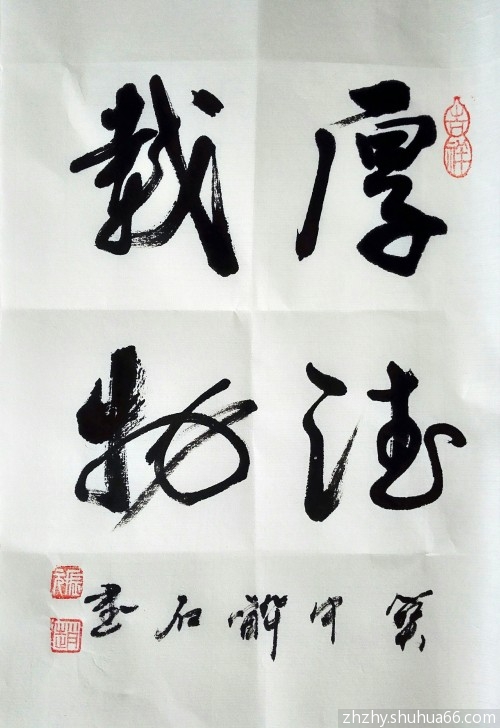 厚德
载物
吉祥
石
書
zhzhy.shuhua66.com